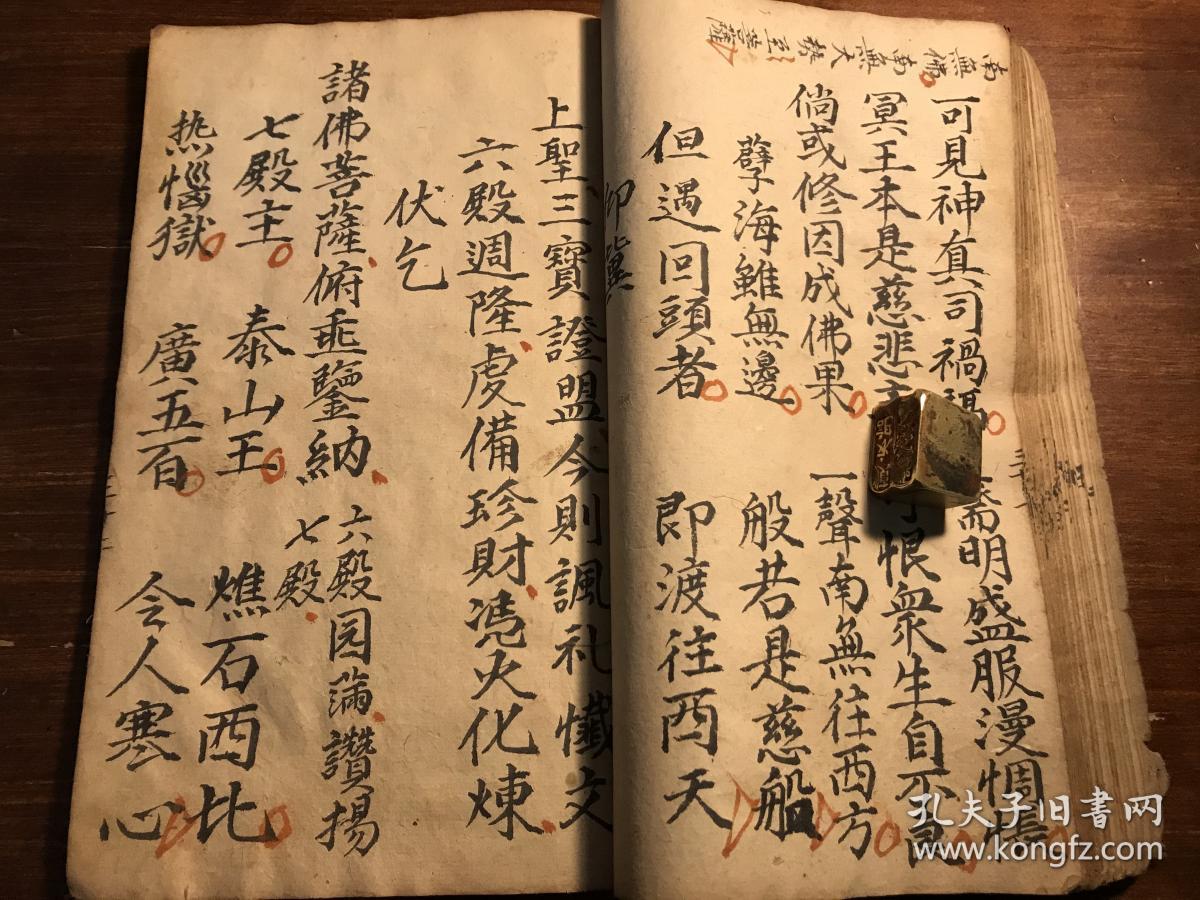 南無佛南無大勢至菩薩
可見神真司禍 齋明盛服漫惆悵
冥王本是慈悲 恨衆生自不良
倘或修因成佛果 一聲南無往西方
孽海雖無邊 般若是慈船
但遇回頭者 即渡往西天
仰冀
上聖三寳證盟今則諷礼懺文
六殿週隆虔備珍財凴火化煉
伏乞
諸佛菩薩俯垂鑒納 六殿园滿讚揚
七殿
七殿主 泰山王 燋石西比
热惱獄 廣五百 令人寒心
孔夫子旧书网
www.kongfz.com